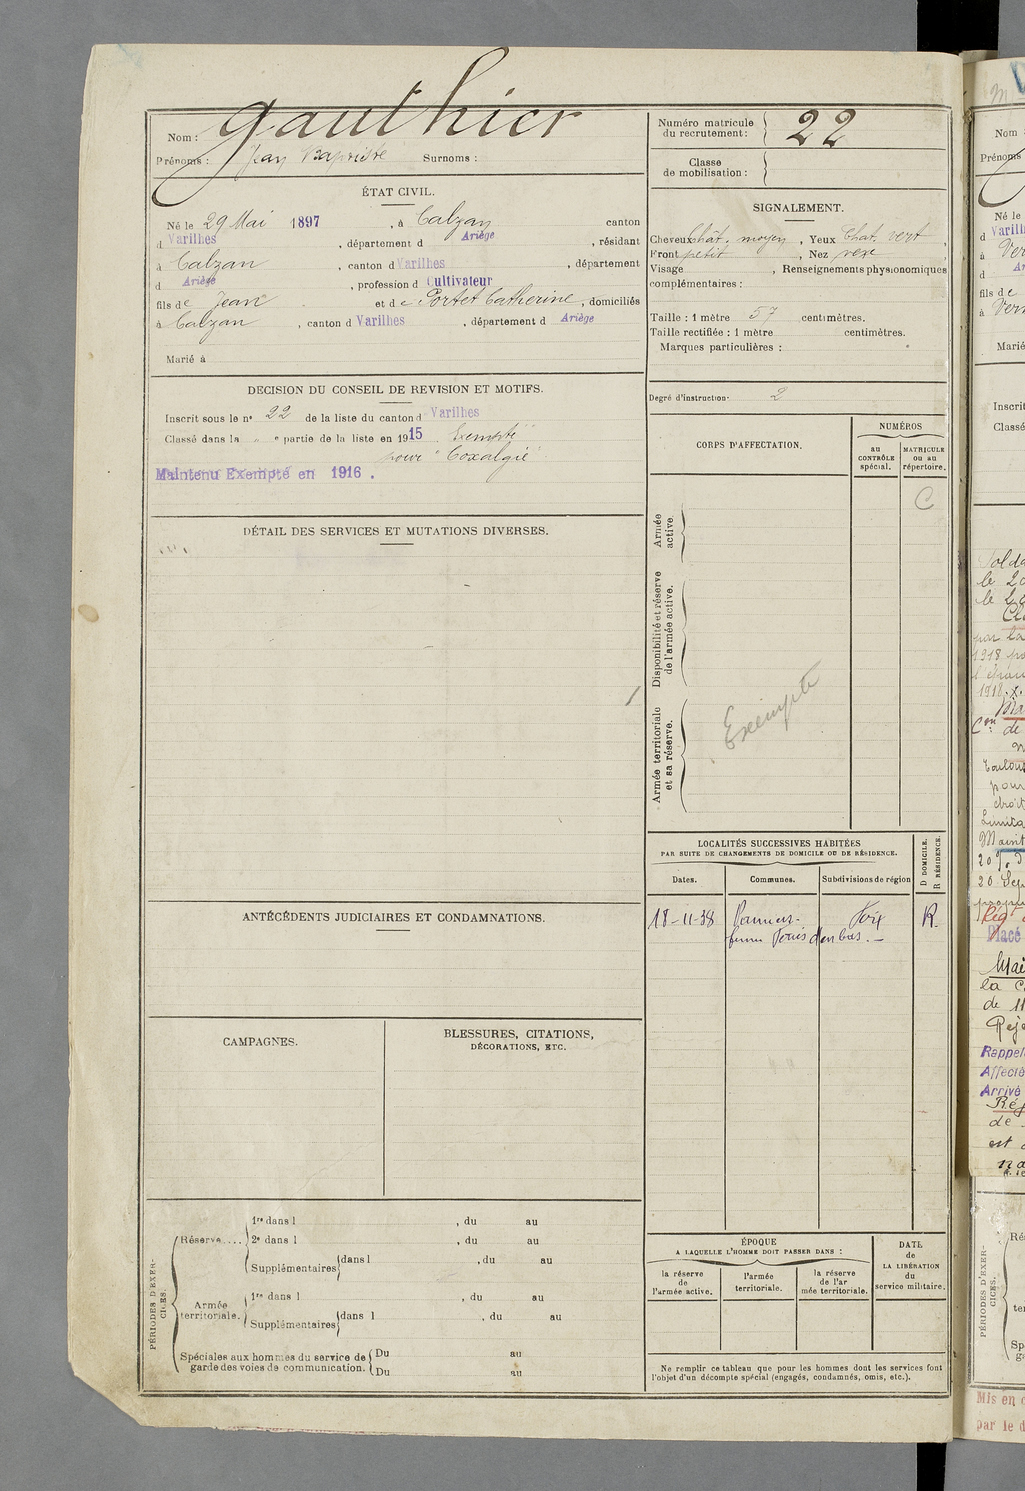 Nom : Gauthier
Prénoms : Jean Baptiste Surnoms :
ÉTAT CIVIL.
Né le 29 Mai 1897, à Calzan canton
d Varilhes, département d Ariège, résidant
à Calzan, canton d Varilhes, département
d Ariège, profession d Cultivateur
fils de Jean et de Portet Catherine, domiciliés
à Calzan, canton d Varilhes, département d Ariège
Marié à
DECISION DU CONSEIL DE REVISION ET MOTIFS.
Inscrit sous le n° 22 de la liste du canton d Varilhes
Classé dans la " e partie de la liste en 1915 Exempté
pour "Coxalgie"
Maintenu Exempté en 1916.
DÉTAIL DES SERVICES ET MUTATIONS DIVERSES.
ANTÉCÉDENTS JUDICIAIRES ET CONDAMNATIONS.
CAMPAGNES.
BLESSURES, CITATIONS,
DÉCORATIONS, ETC.
PÉRIODES D'EXER-
CICES.
Réserve....
1re dans l , du au
2e dans l , du au
Supplémentaires dans l , du au
Armée
territoriale.
1re dans l , du au
Supplémentaires dans l , du au
Spéciales aux hommes du service de
garde des voies de communication.
Du au
Du au
Numéro matricule
du recrutement : 22
Classe
de mobilisation :
SIGNALEMENT.
Cheveux Chât. moyen, Yeux Chat. vert,
Front petit, Nez vexe,
Visage , Renseignements physionomiques
complémentaires :
Taille : 1 mètre 57 centimètres.
Taille rectifiée : 1 mètre centimètres.
Marques particulières :
Degré d'instruction· 2
CORPS D'AFFECTATION.
NUMÉROS
au
CONTRÔLE
spécial.
MATRICULE
ou au
répertoire.
C
Armée
active.
Disponibilité et réserve
de l'armée active.
Armée territoriale
et sa réserve.
Exempté
LOCALITÉS SUCCESSIVES HABITÉES
PAR SUITE DE CHANGEMENTS DE DOMICILE OU DE RÉSIDENCE.
D DOMICILE.
R RÉSIDENCE.
Dates.
Communes.
Subdivisions de région
18-11-38 Pamiers. Foix R.
ferme d'en bas.
ÉPOQUE
A LAQUELLE L'HOMME DOIT PASSER DANS :
la réserve
de
l'armée active.
l'armée
territoriale.
la réserve
de l'ar
mée territoriale.
DATE
de
LA LIBÉRATION
du
service militaire.
Ne remplir ce tableau que pour les hommes dont les services font
l'objet d'un décompte spécial (engagés, condamnés, omis, etc.).
Nom
Prénoms
Né le
d Varilh
à Ver
d Ar
fils de
à Ver
Marié
Inscrit
Classé
Solda
le 20
par la
1918 po
1918.
Con de
Toulou
pour
droit
Limita
Maint
20 Sep
Placé
Mai
la C
de 11
Reje
Rappel
Affecté
Arrivé
Rég
de
est
PÉRIODES D'EXER-
CICES.
Ré
ter
Sp
Mis en
par le d